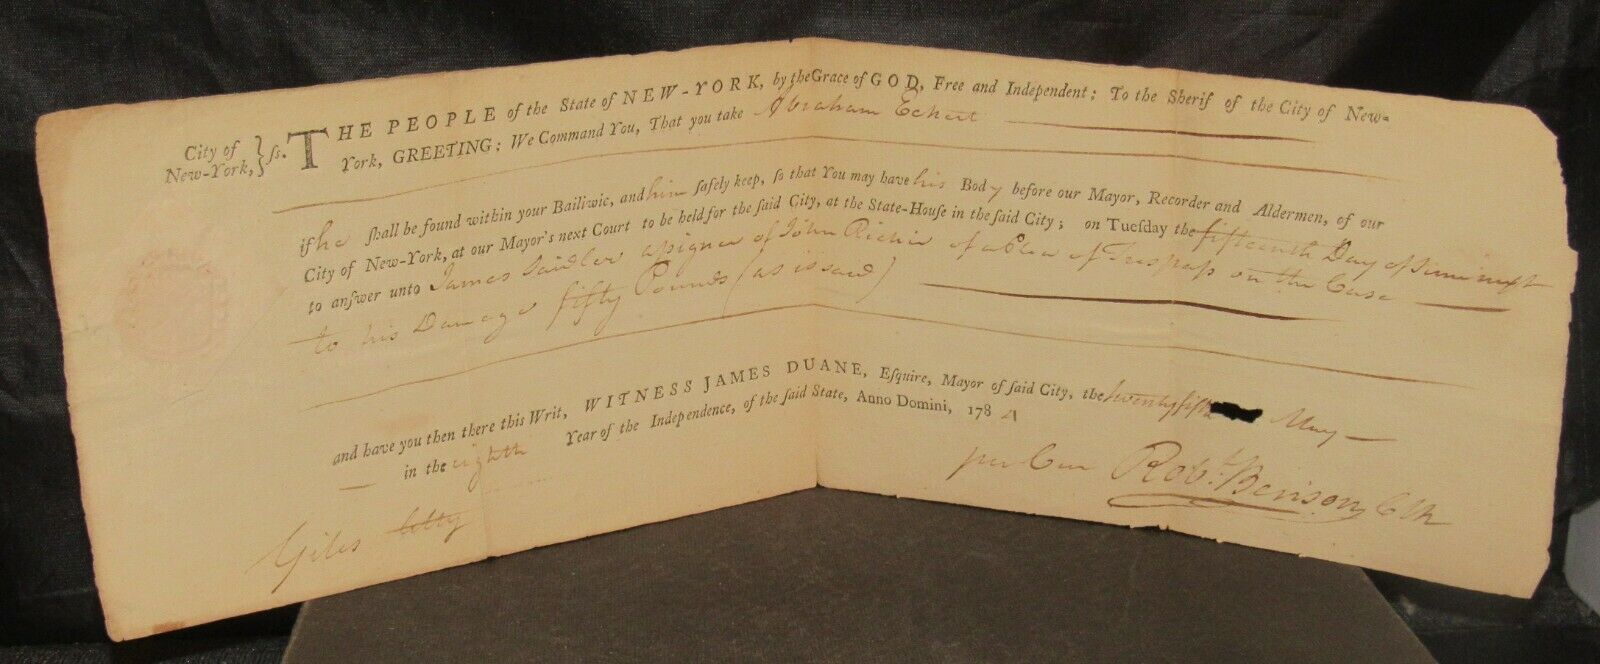 City of New-York, } ſs. THE PEOPLE of the State of NEW-YORK, by the Grace of GOD, Free and Independent; To the Sherif of the City of New-
York, GREETING; We Command You, That you take Abraham Eckert
if he ſhall be found within your Bailiwic, and him ſafely keep, ſo that You may have his Body before our Mayor, Recorder and Aldermen, of our
City of New-York, at our Mayor's next Court to be held for the ſaid City, at the State-Houſe in the ſaid City; on Tueſday the fifteenth Day of June next
to anſwer unto James Saidler aſsignee of John Richie of a Plea of Treſpaſs on the Case
to his Damage fifty Pounds (as is said)
and have you then there this Writ, WITNESS JAMES DUANE, Eſquire, Mayor of ſaid City, the twenty fifth May
in the eighth Year of the Independence, of the ſaid State, Anno Domini, 1784
per Cur Robt. Benson Clk
Giles Atty